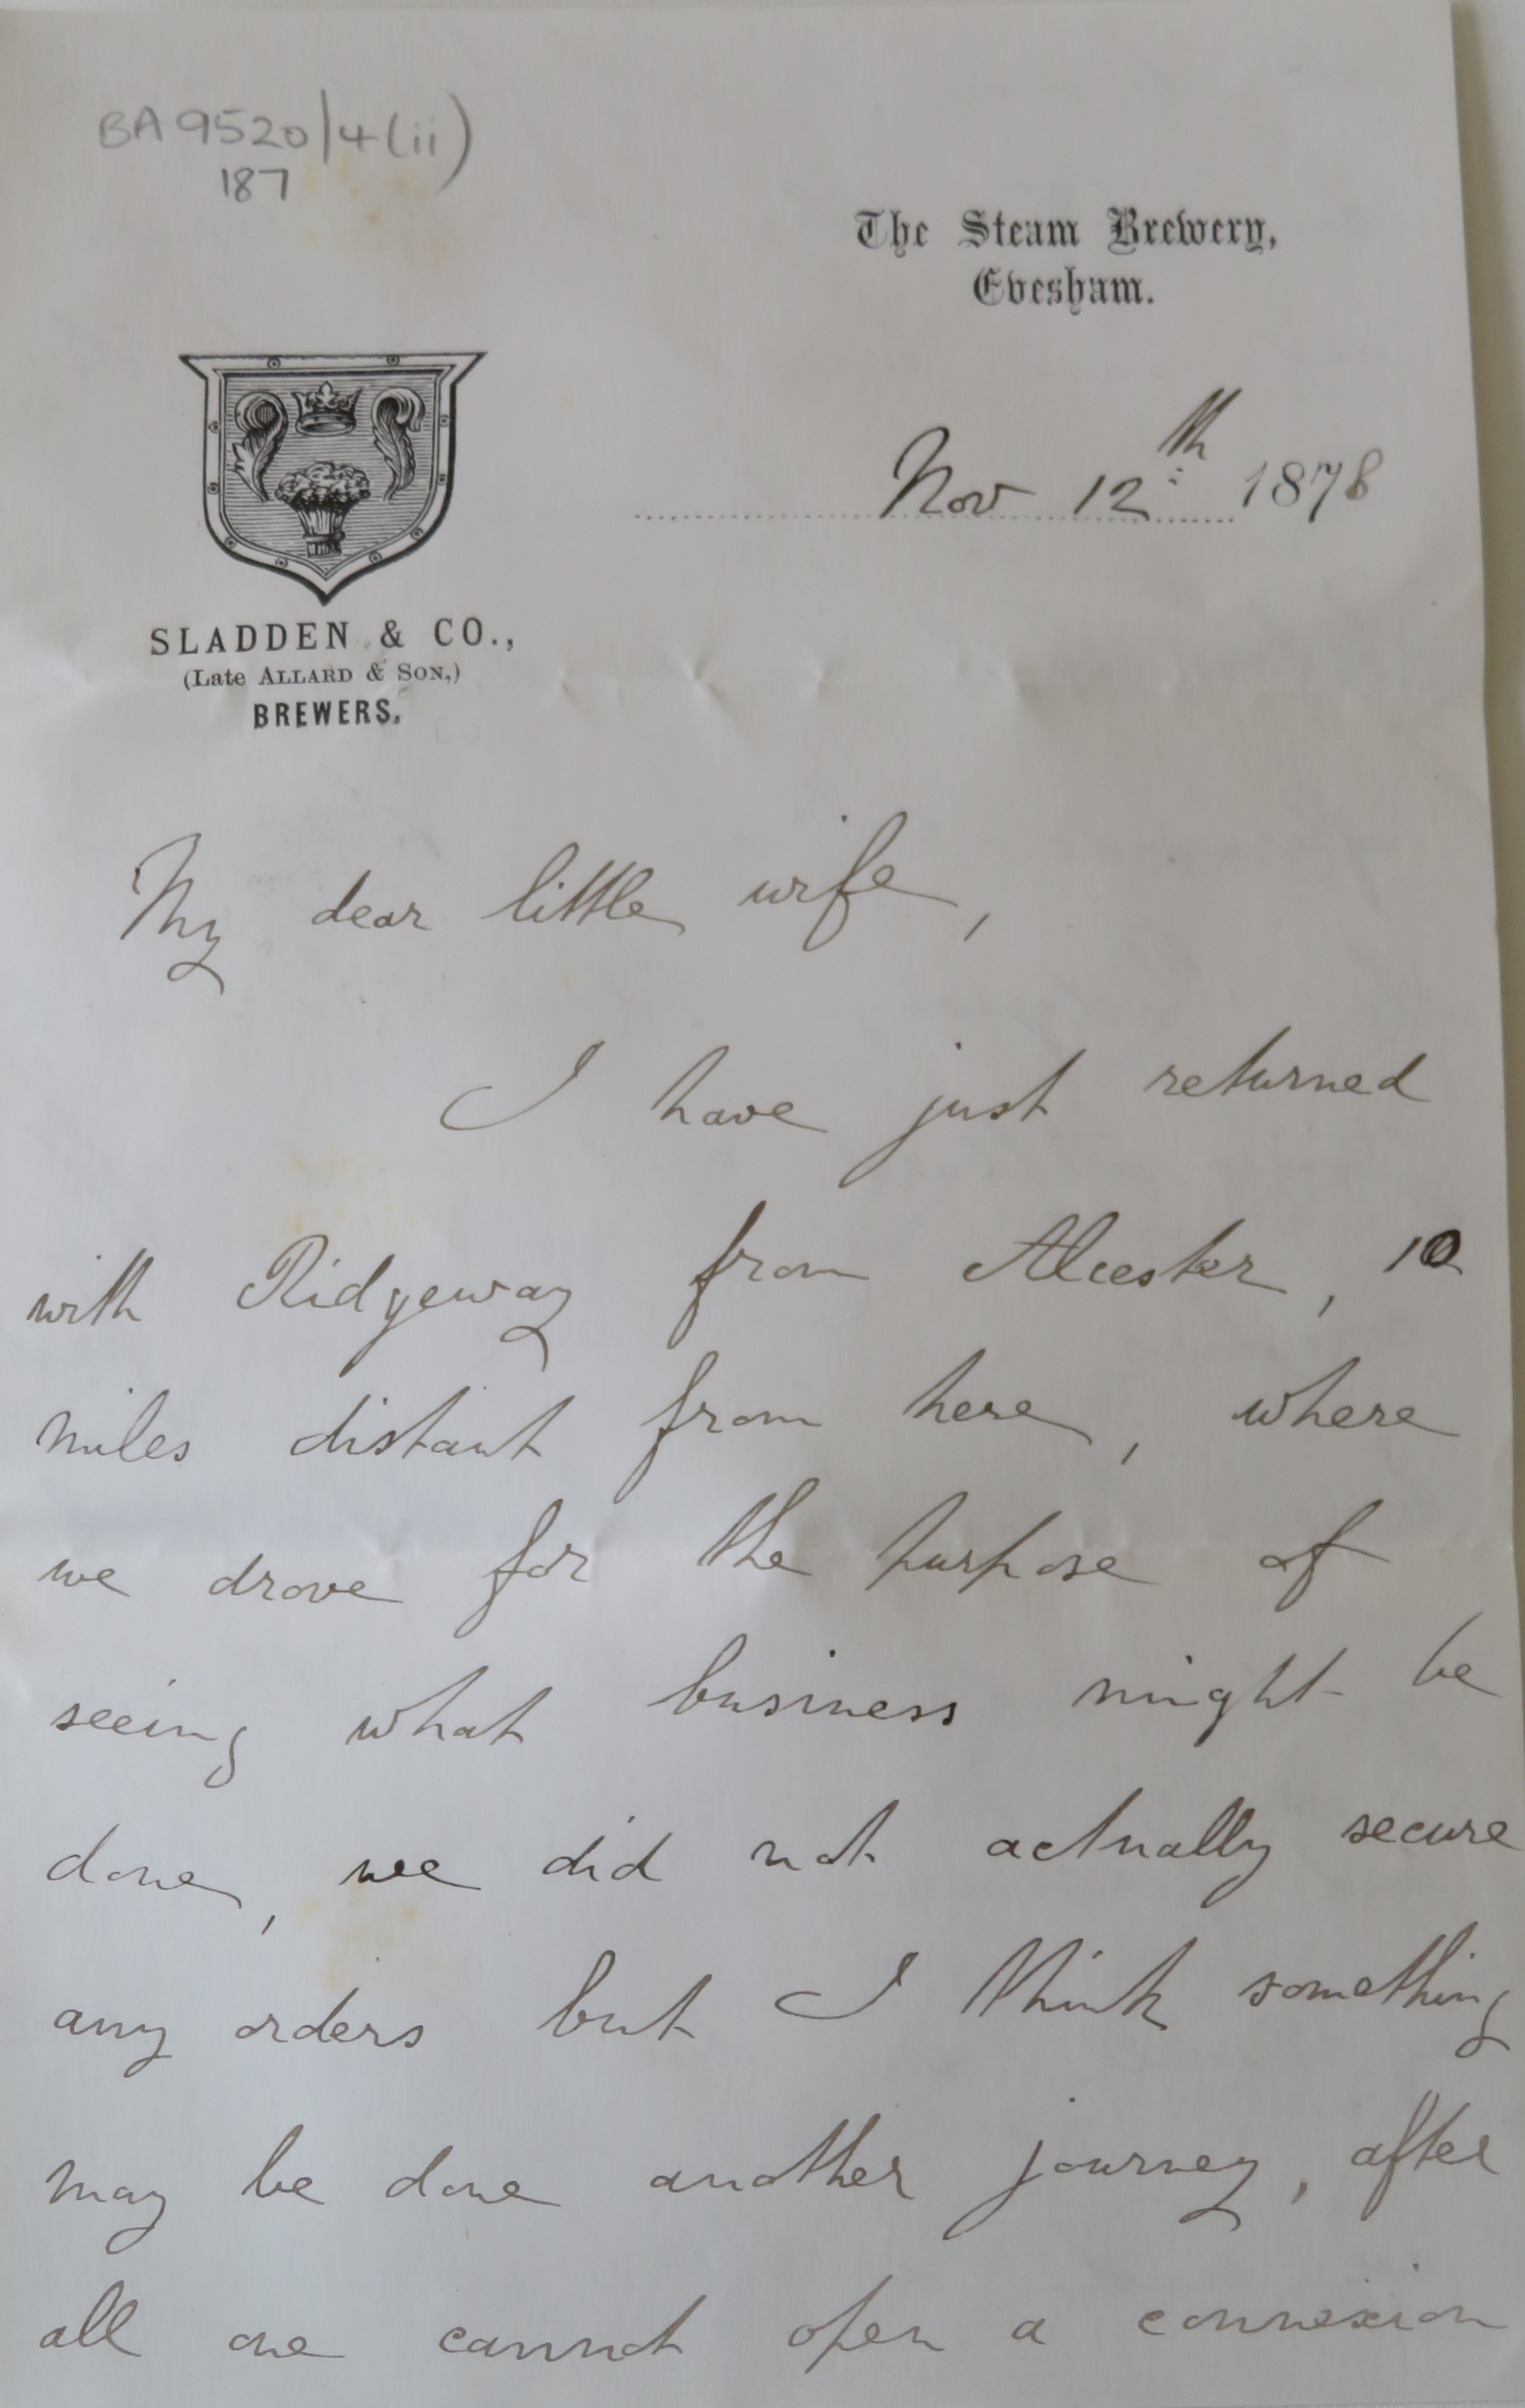 BA 9520/4(ii)
187
The Steam Brewery,
Evesham.
Nov 12th 1878
SLADDEN & CO.,
(Late ALLARD & SON,)
BREWERS.
My dear little wife,
I have just returned
with Ridgeway from Alcester, 10
miles distant from here, where
we drove for the purpose of
seeing what business might be
done, we did not actually secure
any orders but I think something
may be done another journey, after
all one cannot open a connexion